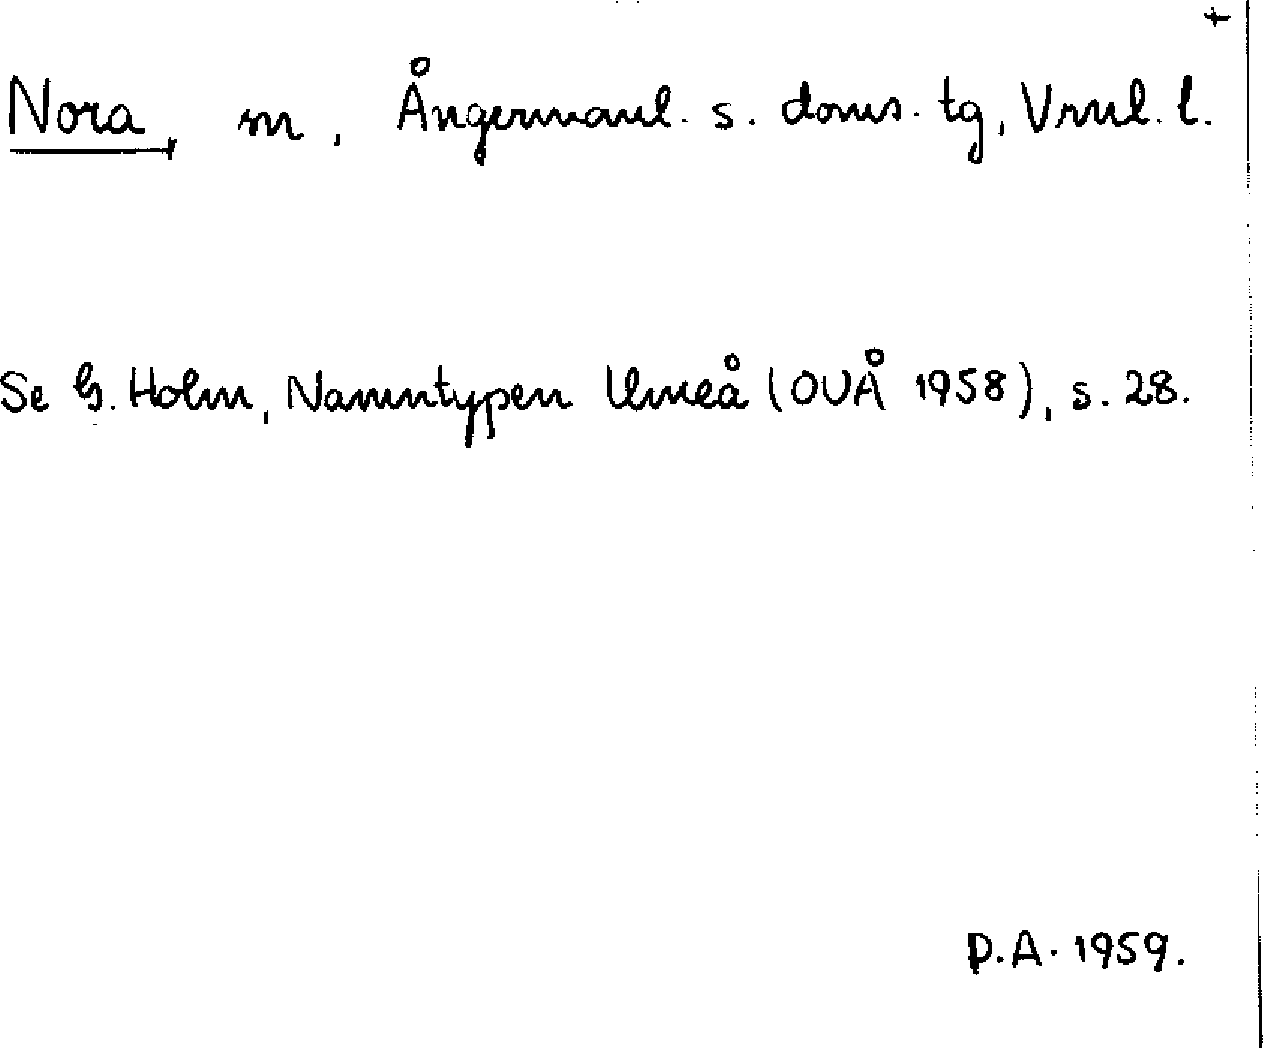 Nora, m, Ångermanl. s. doms. tg, Vrnl. l.
Se G. Holm, Namntypen Umeå (OUÅ 1958), s. 28.
P.A. 1959.